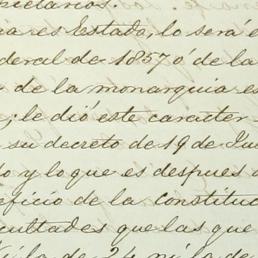 pietarios.
ia es Estado, lo será e
deral de 1857 ó de la
de la monarquia es
; le dió este caracter
su decreto de 19 de Ju
do y lo que es despues d
eficio de la constituc
cultades que las que
de 24 ni la de